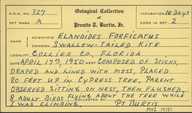 No. 327
Oological Collection
of
Pronto T. Burtis, Jr.
Set Mark A
Incubation 10 Days
Eggs in Set 2
Elanoides Forficatus
Swallow-Tailed Kite
Collier Co, Florida
April 17th, 1950 Composed of sticks,
draped and lined with moss, placed
80 feet up in cypress tree. Parent
observed sitting on nest, then flushed,
8 adult birds flying about the tree while
I was climbing. P.T. Burtis